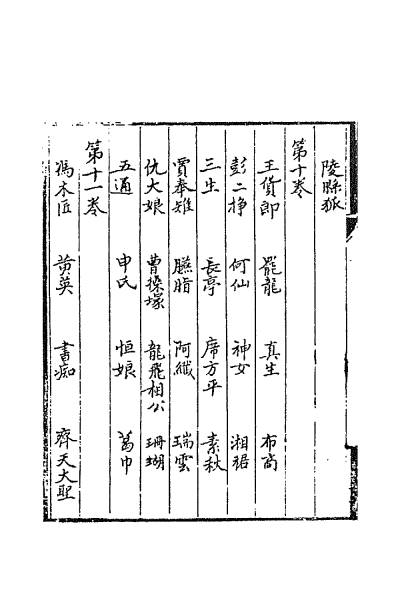 陵縣狐
第十卷
王貨郎 罷龍 真生 布商
彭二掙 何仙 神女 湘裙
三生 長亭 席方平 素秋
賈奉雉 臙脂 阿纖 瑞雲
仇大娘 曹操塚 龍飛相公 珊瑚
五通 申氏 恒娘 葛巾
第十一卷
馮木匠 黄英 書痴 齊天大聖